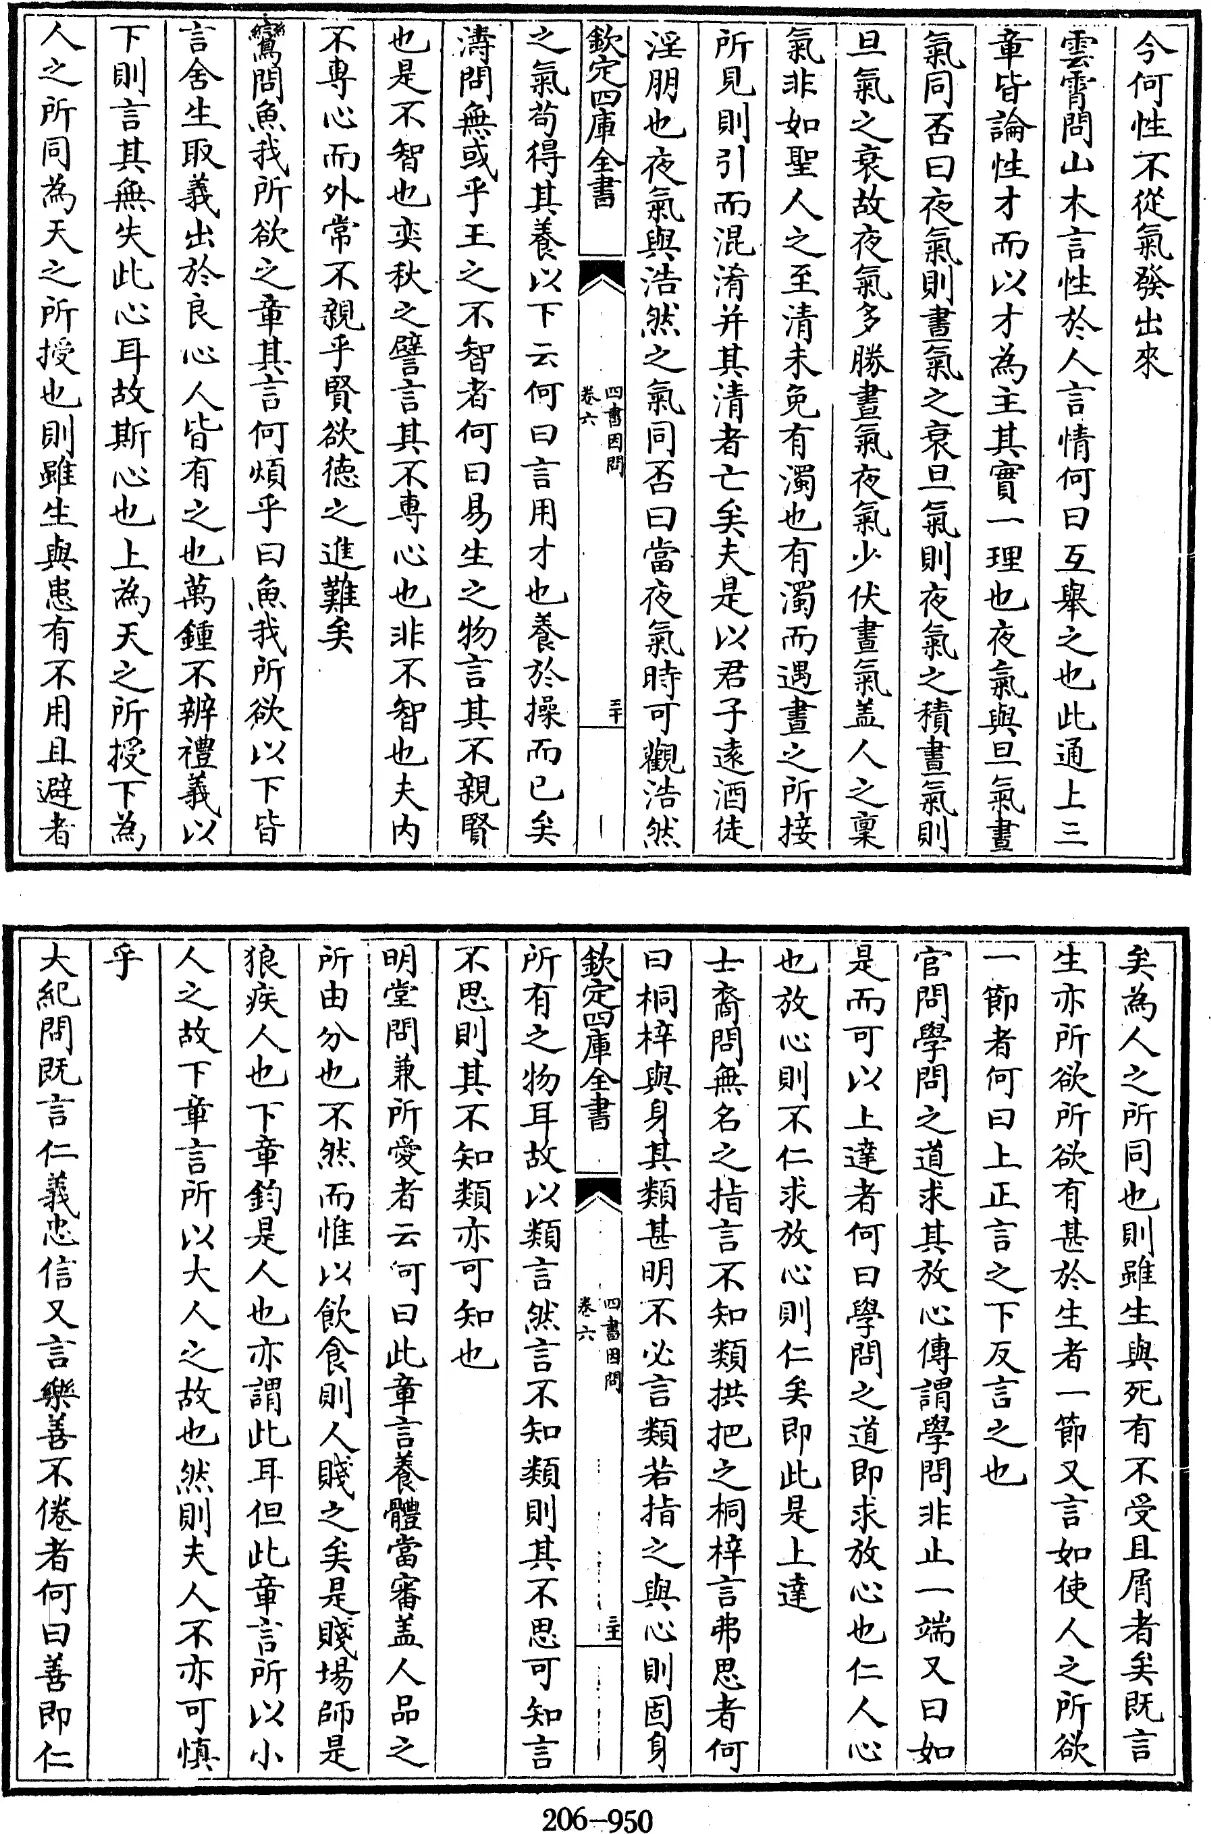 今何性不從氣發出來
雲霄問山木言性於人言情何曰互舉之也此通上三
章皆論性才而以才為主其實一理也夜氣與旦氣晝
氣同否曰夜氣則晝氣之衰旦氣則夜氣之積晝氣則
旦氣之衰故夜氣多勝晝氣夜氣少伏晝氣盖人之稟
氣非如聖人之至清未免有濁也有濁而遇晝之所接
所見則引而混淆并其清者亡矣夫是以君子遠酒徒
淫朋也夜氣與浩然之氣同否曰當夜氣時可觀浩然
欽定四庫全書
四書因問
卷六
三十
之氣苟得其養以下云何曰言用才也養於操而已矣
濤問無或乎王之不智者何曰易生之物言其不親賢
也是不智也奕秋之譬言其不專心也非不智也夫内
不專心而外常不親乎賢欲德之進難矣
鸞問魚我所欲之章其言何煩乎曰魚我所欲以下皆
言舍生取義出於良心人皆有之也萬鍾不辨禮義以
下則言其無失此心耳故斯心也上為天之所授下為
人之所同為天之所授也則雖生與患有不用且避者
矣為人之所同也則雖生與死有不受且屑者矣既言
生亦所欲所欲有甚於生者一節又言如使人之所欲
一節者何曰上正言之下反言之也
官問學問之道求其放心傳謂學問非止一端又曰如
是而可以上達者何曰學問之道即求放心也仁人心
也放心則不仁求放心則仁矣即此是上達
士裔問無名之指言不知類拱把之桐梓言弗思者何
曰桐梓與身其類甚明不必言類若指之與心則固身
欽定四庫全書
四書因問
卷六
三十一
所有之物耳故以類言然言不知類則其不思可知言
不思則其不知類亦可知也
明堂問兼所愛者云何曰此章言養體當審盖人品之
所由分也不然而惟以飲食則人賤之矣是賤場師是
狼疾人也下章鈞是人也亦謂此耳但此章言所以小
人之故下章言所以大人之故也然則夫人不亦可慎
乎
大紀問既言仁義忠信又言樂善不倦者何曰善即仁
206-950